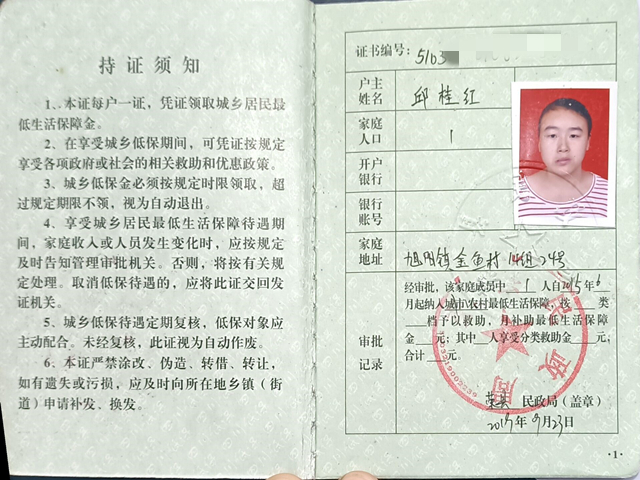 持证须知
1、本证每户一证，凭证领取城乡居民最
低生活保障金。
2、在享受城乡低保期间，可凭证按规定
享受各项政府或社会的相关救助和优惠政策。
3、城乡低保金必须按规定时限领取，超
过规定期限不领，视为自动退出。
4、享受城乡居民最低生活保障待遇期
间，家庭收入或人员发生变化时，应按规定
及时告知管理审批机关。否则，将按有关规
定处理。取消低保待遇的，应将此证交回发
证机关。
5、城乡低保待遇定期复核，低保对象应
主动配合。未经复核，此证视为自动作废。
6、本证严禁涂改、伪造、转借、转让，
如有遗失或污损，应及时向所在地乡镇（街
道）申请补发、换发。
证书编号：5103
户主
姓名 邱桂红
家庭
人口 1
开户
银行
银行
账号
家庭
地址 旭阳镇金鱼村14组24号
审批
记录
经审批，该家庭成员中 1 人自2015年6
月起纳入城市/农村最低生活保障，按 类
档予以救助，月补助最低生活保障
金 元；其中 人享受分类救助金 元，
合计 元。
荣县 民政局（盖章）
年9月23日
·1·